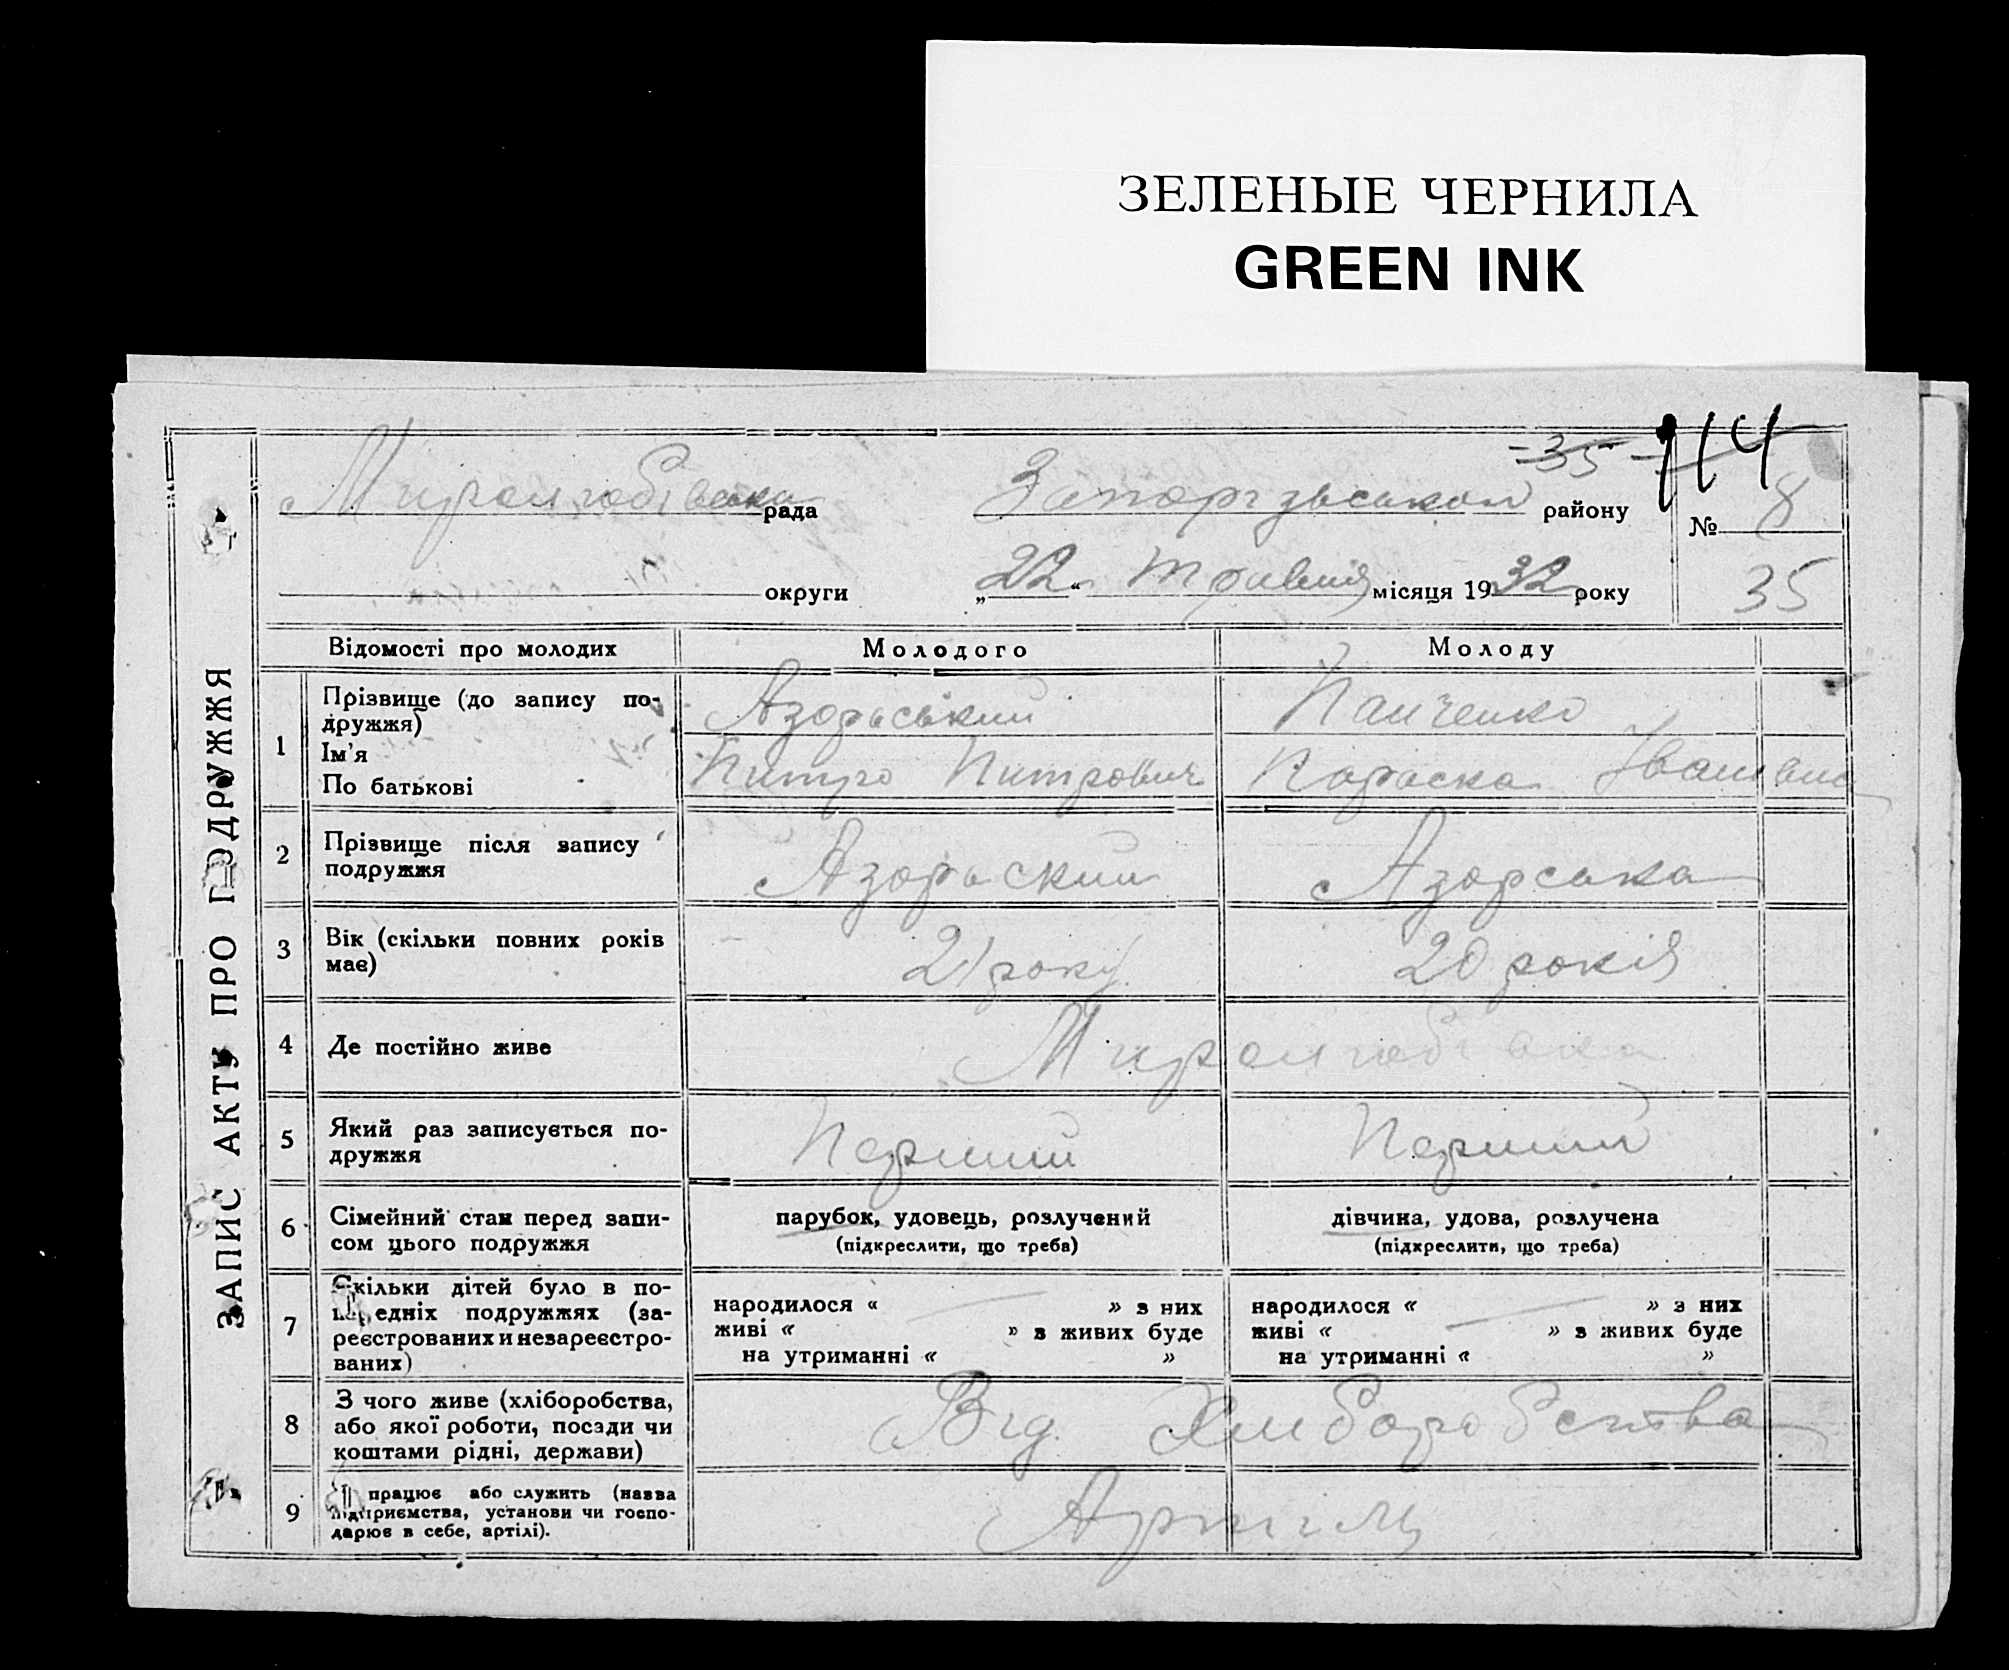 ЗЕЛЕНЫЕ ЧЕРНИЛА
GREEN INK
-35- 114
Миролюбівська рада Запорізьської району № 8
округи „22“ травня місяця 1932 року 35
ЗАПИС АКТУ ПРО ПОДРУЖЖЯ
Відомості про молодих Молодого Молоду
1 Прізвище (до запису по-
дружжя) Азорьський Панченко
Ім'я
По батькові Питро Питрович Параска Іванівна
2 Прізвище після запису
подружжя Азорьский Азорська
3 Вік (скільки повних років
має) 21 року 20 років
4 Де постійно живе Миролюбівка
5 Який раз записується по-
дружжя Перший Перший
6 Сімейний стан перед запи-
сом цього подружжя
парубок, удовець, розлучений
(підкреслити, що треба)
дівчина, удова, розлучена
(підкреслити, що треба)
7 Скільки дітей було в по-
передніх подружжях (за-
реєстрованих и незареєстро-
ваних)
народилося « — » з них
живі « » з живих буде
на утриманні « »
народилося « — » з них
живі « — » з живих буде
на утриманні « »
8 З чого живе (хліборобства,
або якої роботи, посади чи
коштами рідні, держави)
Від Хлиборобства
9 працює або служить (назва
підприємства, установи чи госпо-
дарює в себе, артілі).
Артіль